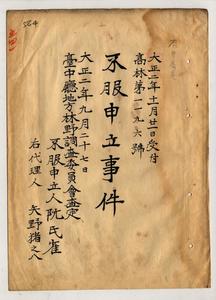 大正二年十一月廿一日受付
高林第一一九六號
不服申立事件
大正二年九月二十七日
臺中廳地方林野調查委員會查定
不服申立人 阮氏雀
右代理人 矢野猪之八